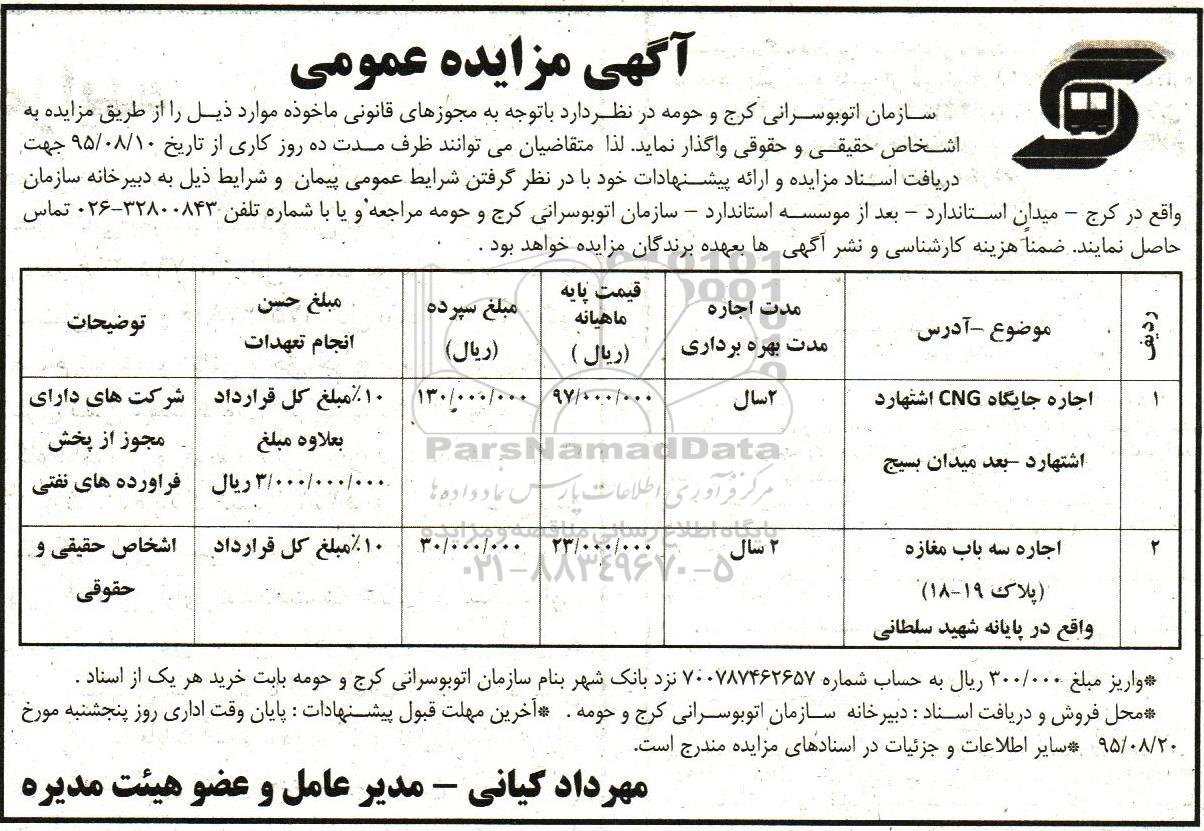 آگهی مزایده عمومی
سازمان اتوبوسرانی کرج و حومه در نظردارد باتوجه به مجوزهای قانونی ماخوذه موارد ذیل را از طریق مزایده به
اشخاص حقیقی و حقوقی واگذار نماید. لذا متقاضیان می توانند ظرف مدت ده روز کاری از تاریخ ۹۵/۰۸/۱۰ جهت
دریافت اسناد مزایده و ارائه پیشنهادات خود با در نظر گرفتن شرایط عمومی پیمان و شرایط ذیل به دبیرخانه سازمان
واقع در کرج – میدان استاندارد – بعد از موسسه استاندارد – سازمان اتوبوسرانی کرج و حومه مراجعه و یا با شماره تلفن ۳۲۸۰۰۸۴۳-۰۲۶ تماس
حاصل نمایند. ضمناً هزینه کارشناسی و نشر آگهی ها بعهده برندگان مزایده خواهد بود .
ردیف
موضوع –آدرس
مدت اجاره
مدت بهره برداری
قیمت پایه
ماهیانه
(ریال )
مبلغ سپرده
(ریال)
مبلغ حسن
انجام تعهدات
توضیحات
۱
اجاره جایگاه CNG اشتهارد
اشتهارد –بعد میدان بسیج
۲سال
۹۷/۰۰۰/۰۰۰
۱۳۰/۰۰۰/۰۰۰
۱۰٪مبلغ کل قرارداد
بعلاوه مبلغ
۳/۰۰۰/۰۰۰/۰۰۰ ریال
شرکت های دارای
مجوز از پخش
فراورده های نفتی
۲
اجاره سه باب مغازه
(پلاک ۱۹-۱۸)
واقع در پایانه شهید سلطانی
۲ سال
۲۳/۰۰۰/۰۰۰
۳۰/۰۰۰/۰۰۰
۱۰٪مبلغ کل قرارداد
اشخاص حقیقی و
حقوقی
ParsNamadData
مرکز فرآوری اطلاعات پارس نماد داده ها
پایگاه اطلاع رسانی مناقصه و مزایده
۰۲۱-۸۸۳۴۹۶۷۰-۵
*واریز مبلغ ۳۰۰/۰۰۰ ریال به حساب شماره ۷۰۰۷۸۷۴۶۲۶۵۷ نزد بانک شهر بنام سازمان اتوبوسرانی کرج و حومه بابت خرید هر یک از اسناد .
*محل فروش و دریافت اسناد : دبیرخانه سازمان اتوبوسرانی کرج و حومه . *آخرین مهلت قبول پیشنهادات : پایان وقت اداری روز پنجشنبه مورخ
۹۵/۰۸/۲۰ *سایر اطلاعات و جزئیات در اسنادهای مزایده مندرج است.
مهرداد کیانی – مدیر عامل و عضو هیئت مدیره